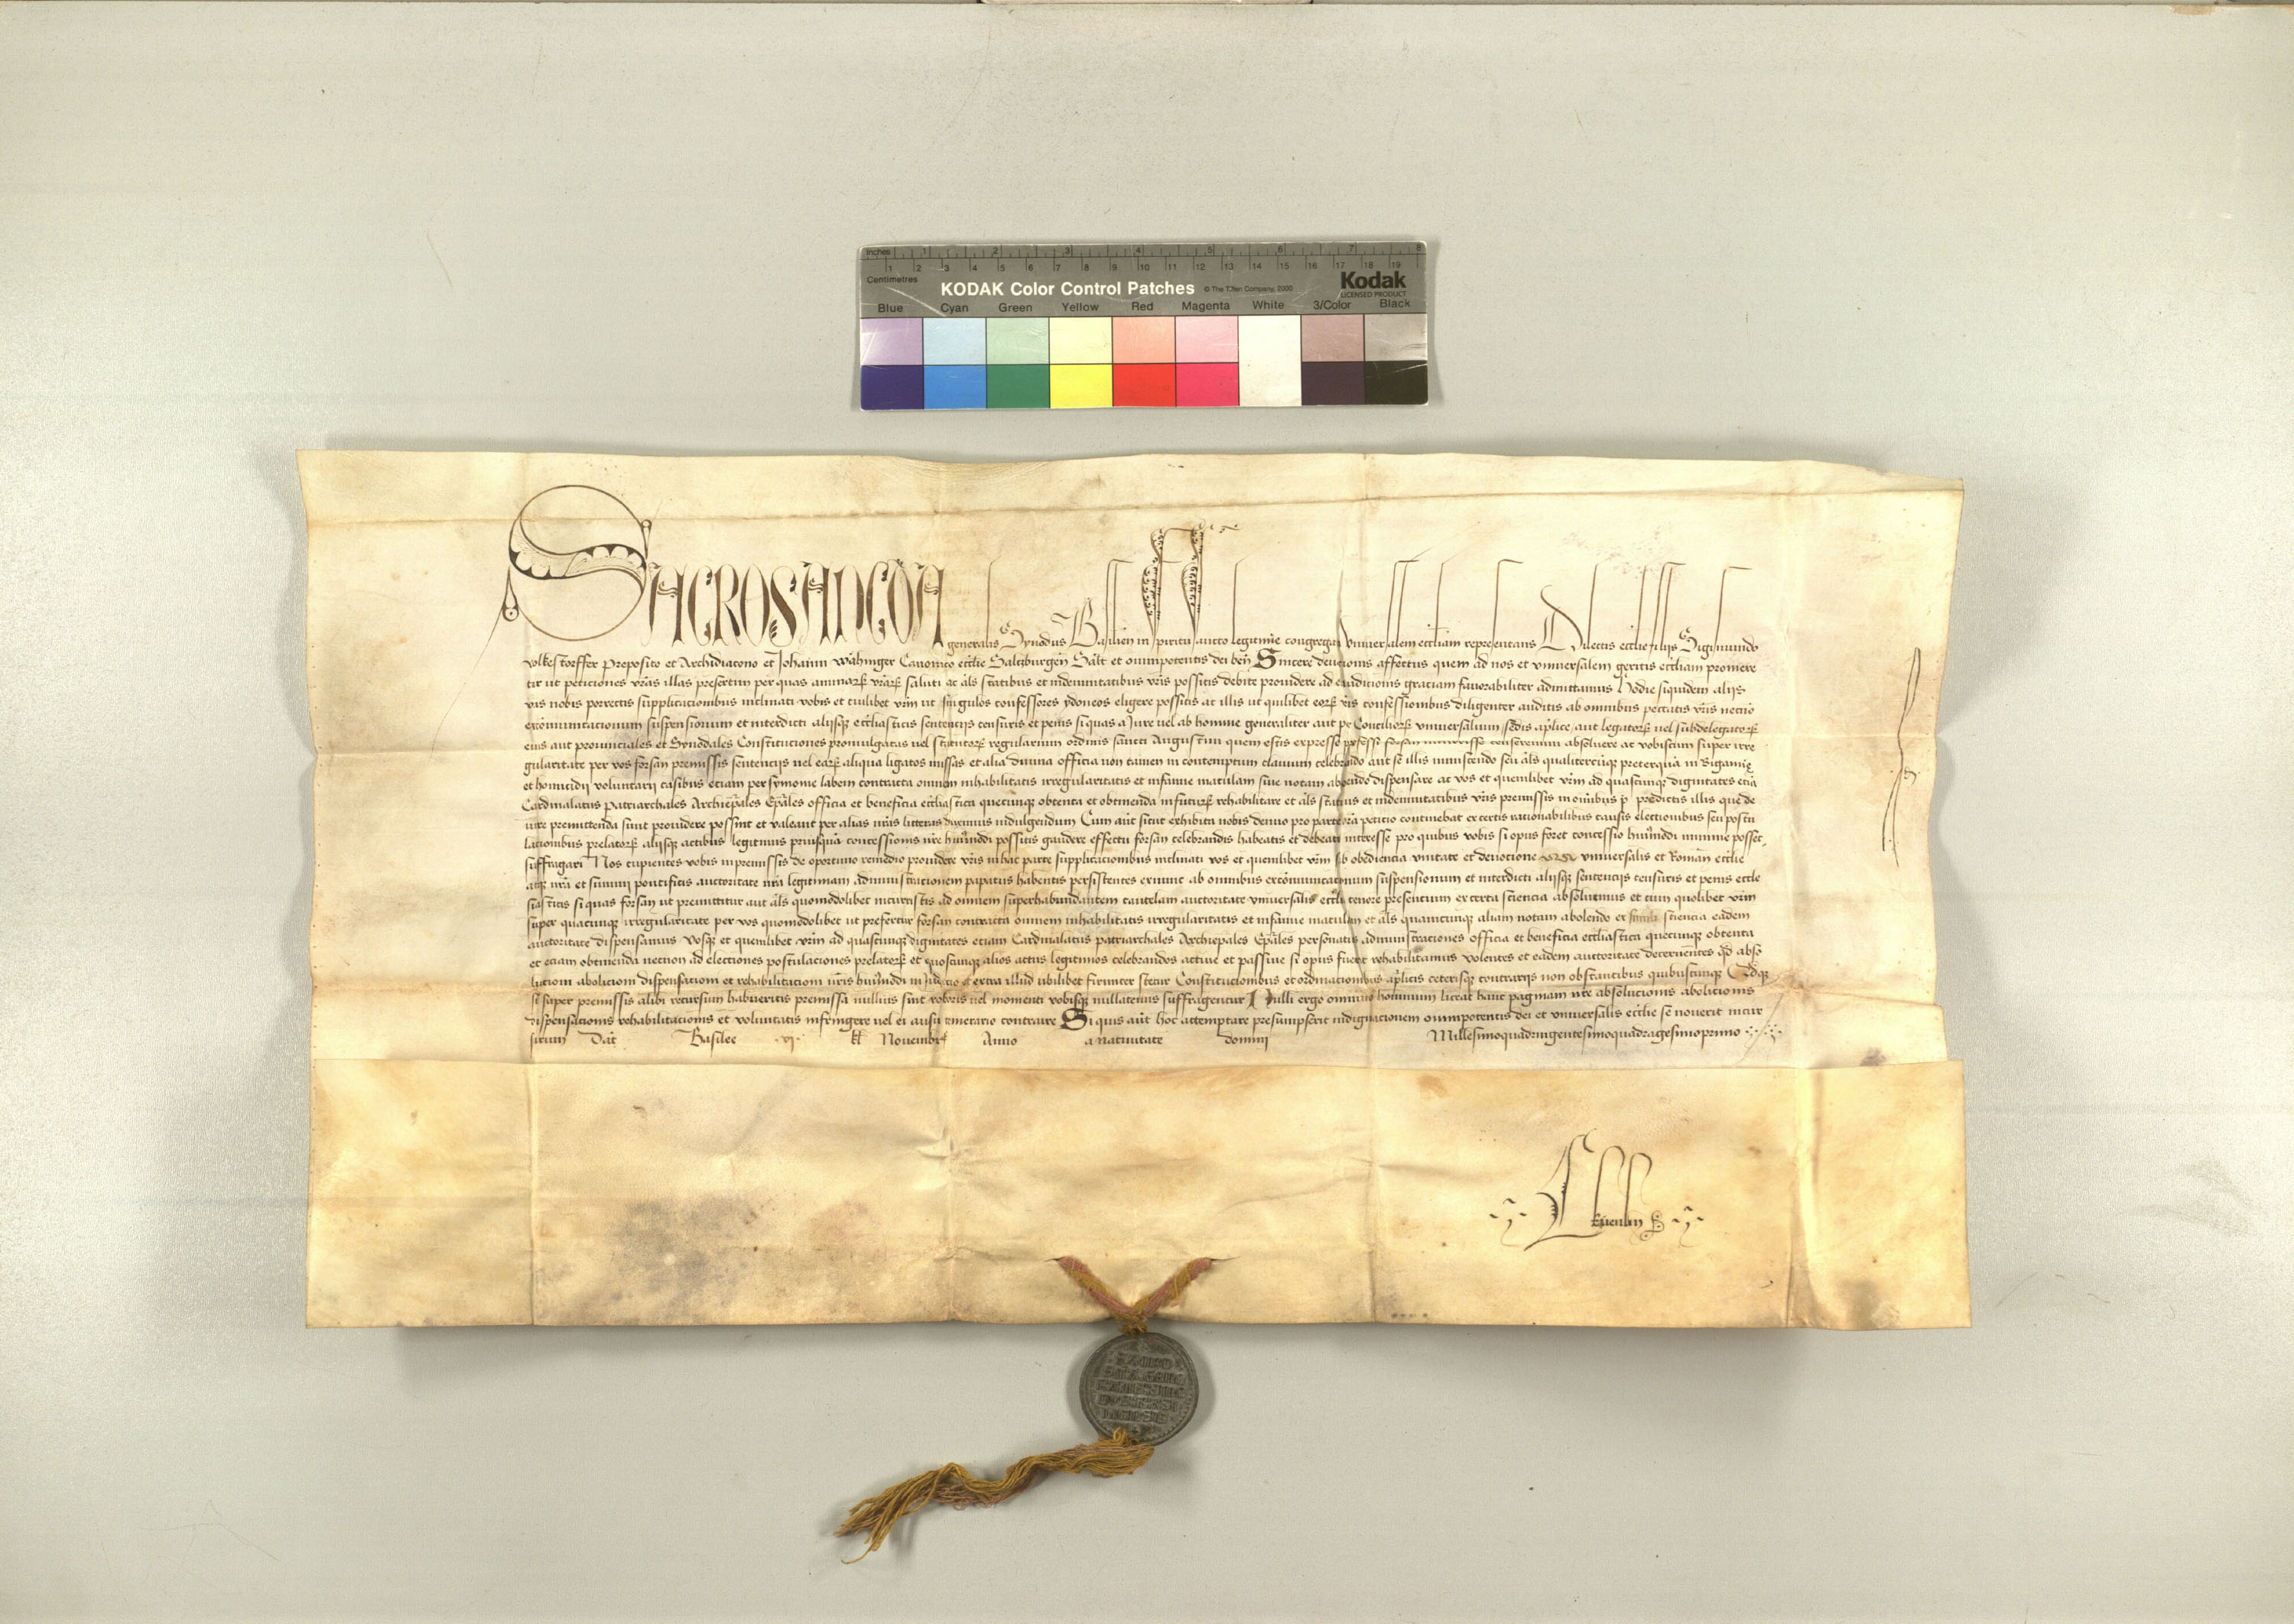 Inches 1 2 3 4 5 6 7 8
1 2 3 4 5 6 7 8 9 10 11 12 13 14 15 16 17 18 19
Centimetres
KODAK Color Control Patches © The Tiffen Company, 2000 Kodak
LICENSED PRODUCT
Blue Cyan Green Yellow Red Magenta White 3/Color Black
SACROSANCTA generalis Synodus Basilien in spiritu sancto legittime congregata vniuersalem eccliam representans Dilectis ecclie filijs Sigismundo
volkestorffer Preposito et Archidiacono et Johanni Canonico ecclie Saltzburgen Salt et omnipotentis dei ben Sincere deuocionis affectus quem ad nos et vniuersalem geritis eccliam promere
tur ut peticiones vras illas presertim per quas animarꝝ vrarꝝ saluti ac als statibus et indemnitatibus vris possitis debite prouidere ad exaudicionis graciam fauorabiliter admittamus Hodie siquidem alijs
vris nobis porrectis supplicacionibus inclinati vobis et cuilibet vrm ut singulos confessores ydoneos eligere possitis ac illis ut quilibet eorꝝ vris confessionibus diligenter auditis ab omnibus peccatis vris necno
excomunicacionum suspensionum et interdicti alijsqꝫ ecclesiasticis sentencijs censuris et penis si quas a Jure uel ab homine generaliter aut per Conciliorꝝ vniuersalium sedis aplice aut legatorꝝ uel subdelegatorꝝ
eius aut prouinciales et Synodales Constituciones promulgatas uel statutorꝝ regularium ordinis sancti Augustini quem estis expresse professi forsan incurrisse censeremini absoluere ac vobiscum super irre
gularitate per vos forsan premissis sentencijs uel earꝝ aliqua ligatos missas et alia diuina officia non tamen in contemptum clauium celebrando aut se illis inmiscendo seu als qualitercumqꝫ preterqua in Bigamie
et homicidij voluntarij casibus etiam per symonie labem contracta omnem inhabilitatis irregularitatis et infamie maculam siue notam abolendo dispensare ac vos et quemlibet vrm ad quascumqꝫ dignitates etia
Cardinalatus Patriarchales Archiepales Epales officia et beneficia ecclesiastica quecumqꝫ obtenta et obtinenda in futurꝝ rehabilitare et als statibus et indemnitatibus vris premissis in omnibus predictis illis que de
iure premittenda sunt prouidere possint et valeant per alias nras litteras duximus indulgendum Cum aut sicut exhibita nobis denuo pro parte vra peticio continebat ex certis racionabilibus causis electionibus seu postu
lacionibus prelatorꝝ alijsqꝫ actibus legitimis priusqua concessionis nre huiusmodi possitis gaudere effectu forsan celebrandis habeatis et debeatis interesse pro quibus vobis si opus foret concessio huiusmodi minime posset
suffragari Nos cupientes vobis in premissis de oportuno remedio prouidere vris in hac parte supplicacionibus inclinati vos et quemlibet vrm sub obediencia vnitate et deuocione vniuersalis et Roman ecclie
atqꝫ nra et summi pontificis auctoritate nra legitimam administracionem papatus habentis persistentes exnunc ab omnibus excomunicacionum suspensionum et interdicti alijsqꝫ sentencijs censuris et penis eccle
siasticis si quas forsan ut premittitur aut als quomodolibet incurristis ad omnem superhabundantem cautelam auctoritate vniuersalis ecclie tenore presentium ex certa sciencia absoluimus et cum quolibet vrm
super quacumqꝫ irregularitate per vos quomodolibet ut prefertur forsan contracta omnem inhabilitatis irregularitatis et infamie maculam et als quamcumqꝫ aliam notam abolendo ex simili sciencia eadem
auctoritate dispensamus vosqꝫ et quemlibet vrm ad quascumqꝫ dignitates etiam Cardinalatus patriarchales Archiepales Epales personatus administraciones officia et beneficia ecclesiastica quecumqꝫ obtenta
et etiam obtinenda necnon ad electiones postulaciones prelatorꝝ et quoscumqꝫ alios actus legitimos celebrandos actiue et passiue si opus fuerit rehabilitamus volentes et eadem auctoritate decernentes qd abso
lucioni abolicioni dispensacioni et rehabilitacioni nris huiusmodi in Judicio et extra illud vbilibet firmiter stetur Constitucionibus et ordinacionibus aplicis ceterisqꝫ contrarijs non obstantibus quibuscumqꝫ
si super premissis alibi recursum habueritis premissa nullius sint roboris uel momenti vobisqꝫ nullatenus suffragentur Nulli ergo omnino hominum liceat hanc paginam nre absolucionis abolicionis
dispensacionis rehabilitacionis et voluntatis infringere uel ei ausu temerario contraire Si quis aut hoc attemptare presumpserit indignacionem omnipotentis dei et vniuersalis ecclie se nouerit incur
surum Dat Basilee vj kl Nouembrꝭ Anno a natiuitate domini Millesimoquadringentesimoquadragesimoprimo